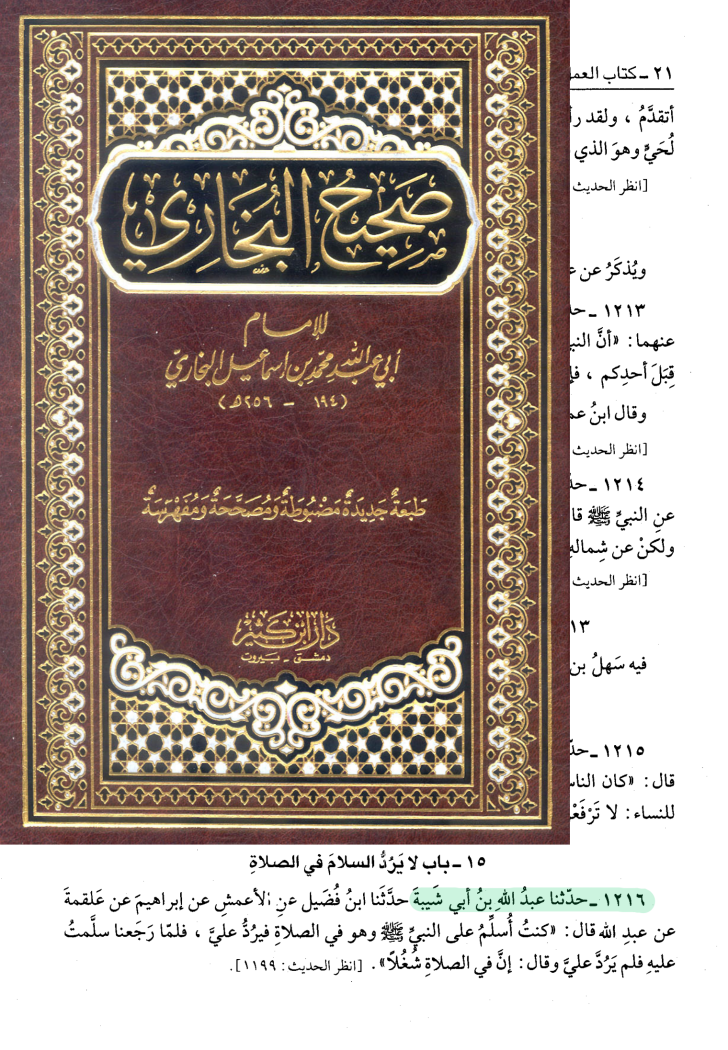 صَحِيحُ البُخَارِي
للإمام
أبي عبد الله محمد بن إسماعيل البخاري
(١٩٤ – ٢٥٦هـ)
طَبعَةٌ جَدِيدَةٌ مَضبُوطَةٌ وَمُصَحَّحَةٌ وَمُفَهْرَسَةٌ
دار ابن كثير
دمشق - بيروت
٢١ ـ كتاب
أتقدَّمُ ، ولقد
لُحَيٍّ وهوَ الذي
[انظر الحديث
ويُذكَرُ عن
١٢١٣ ـ
عنهما: «أنَّ
قِبَلَ أحدِكم ،
وقال ابنُ
[انظر الحديث
١٢١٤ ـ
عنِ النبيِّ ﷺ
ولكنْ عن شِماله
[انظر الحديث
فيه سَهلُ بن
١٢١٥ ـ
قال: «كان
للنساء: لا
١٥ ـ باب لا يَرُدُّ السلامَ في الصلاةِ
١٢١٦ ـ حدّثنا عبدُ اللهِ بنُ أبي شَيبةَ حدَّثَنا ابنُ فُضَيل عنِ الأعمشِ عن إبراهيمَ عن عَلقمةَ
عن عبدِ الله قال: «كنتُ أُسلِّمُ على النبيِّ ﷺ وهو في الصلاةِ فيرُدُّ عليَّ ، فلمّا رَجَعنا سلَّمتُ
عليهِ فلم يَرُدَّ عليَّ وقال: إنَّ في الصلاةِ شُغُلاً». [انظر الحديث: ١١٩٩].